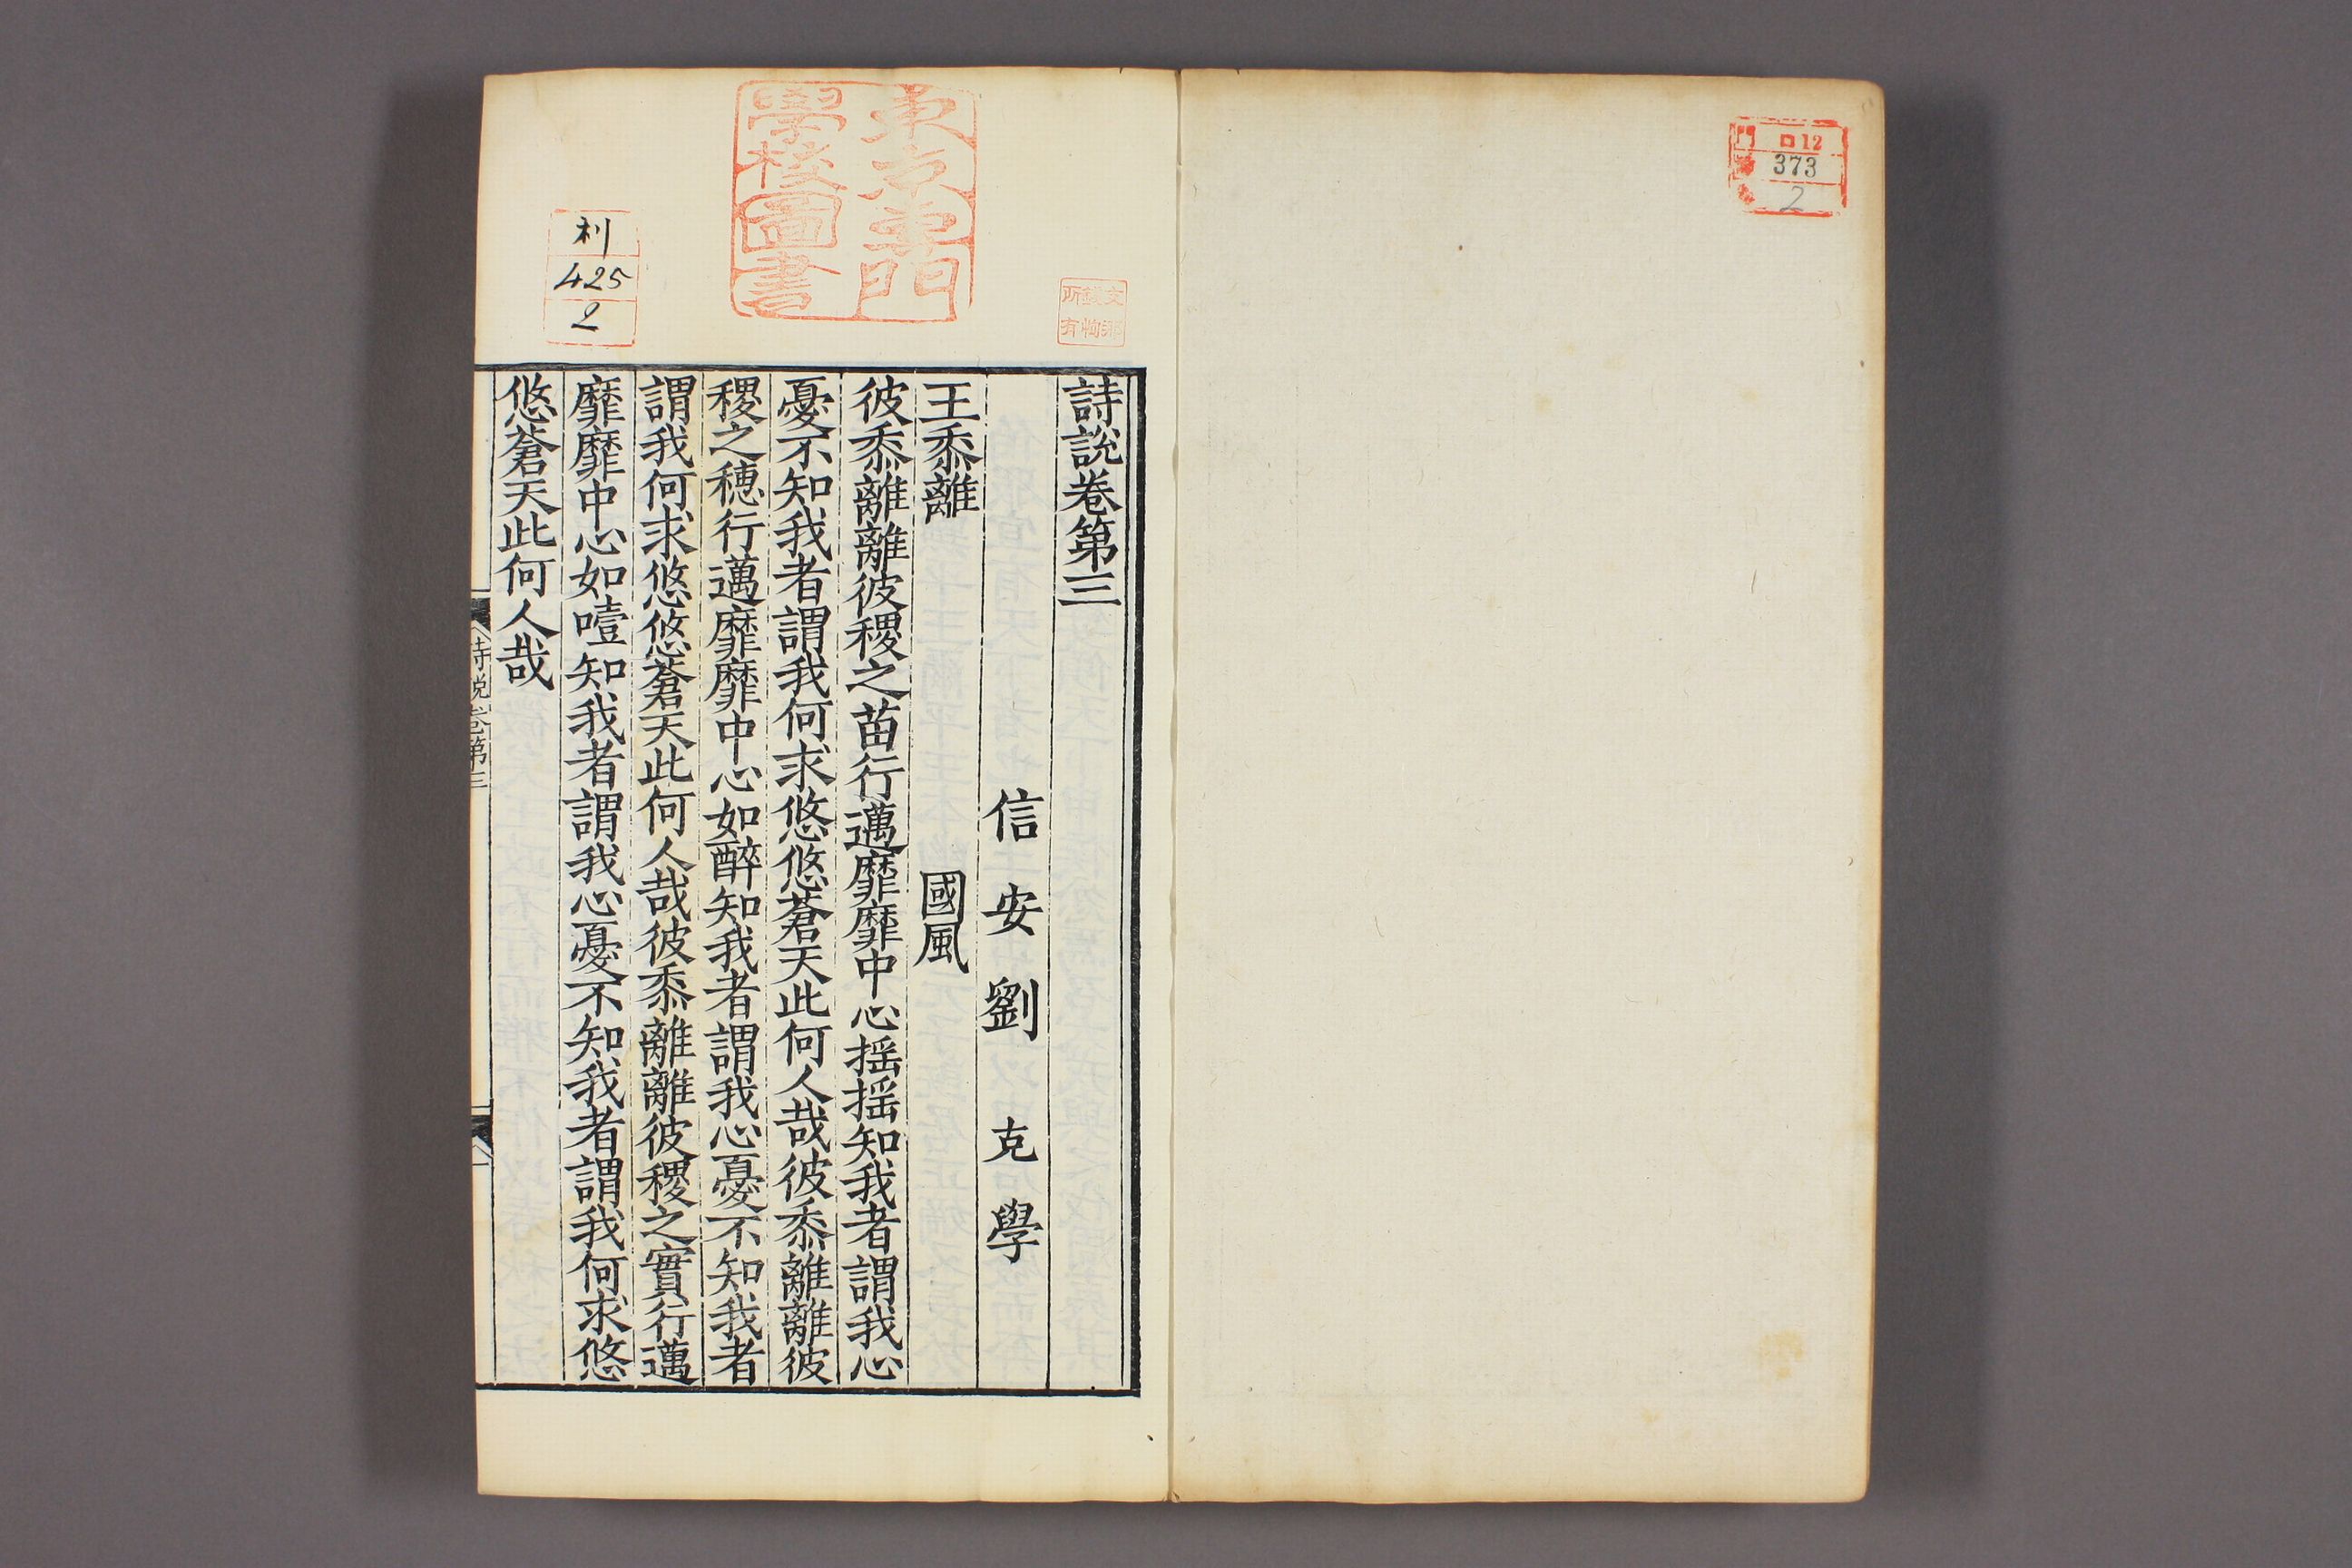 口12
373
2
東京專門
學校圖書
利
425
2
詩說卷第三
信安劉克學
王黍離 國風
彼黍離離彼稷之苗行邁靡靡中心搖搖知我者謂我心
憂不知我者謂我何求悠悠蒼天此何人哉彼黍離離彼
稷之穗行邁靡靡中心如醉知我者謂我心憂不知我者
謂我何求悠悠蒼天此何人哉彼黍離離彼稷之實行邁
靡靡中心如噎知我者謂我心憂不知我者謂我何求悠
悠蒼天此何人哉
詩說卷第三